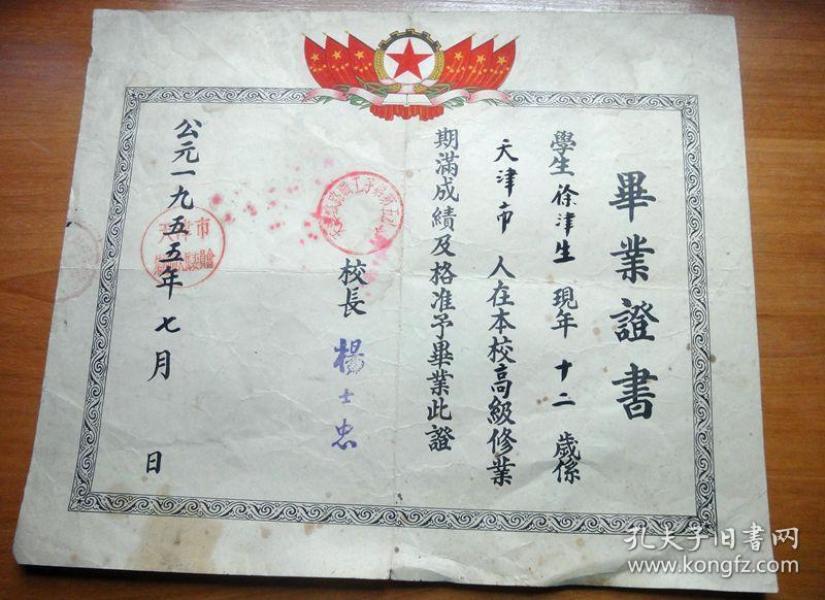 畢業證書
學生徐津生現年十二歲係
天津市人在本校高級修業
期滿成績及格准予畢業此證
校長楊士忠
公元一九五五年七月 日
天津市
孔夫子旧书网
www.kongfz.com